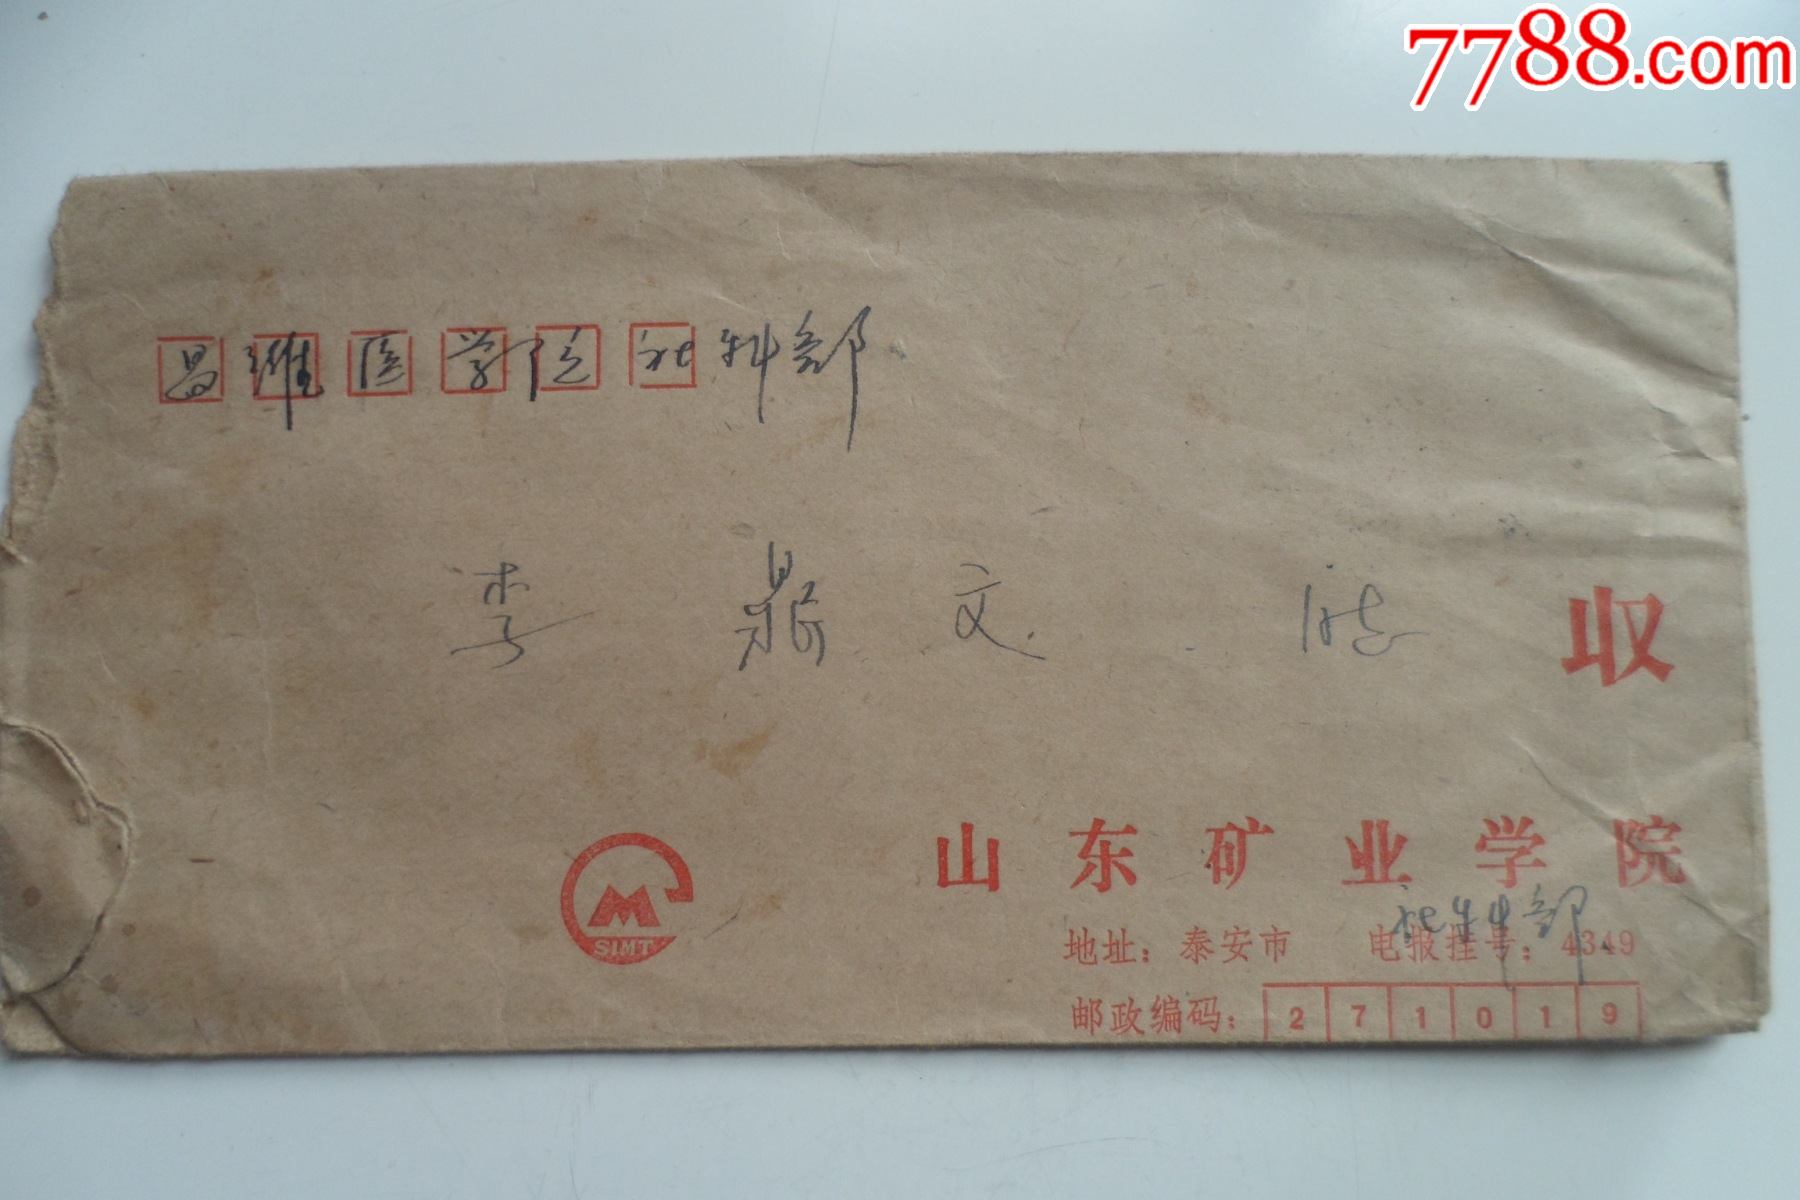 7788.com
昌潍医学院社科部
李鼎文 收
SIMT
山东矿业学院
社科部
地址：泰安市 电报挂号：4349
邮政编码：271019